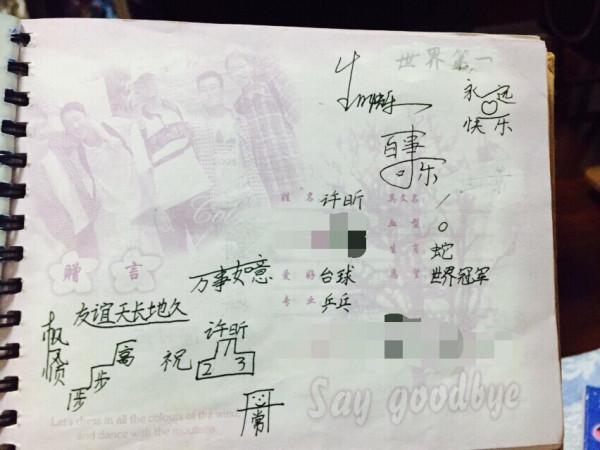 世界第一
永远
快乐
百事
可乐
姓 名 许昕 英文名 /
血 型 O
生 肖 蛇
爱 好 台球 愿 望 世界冠军
专 业 乒乓
赠 言
万事如意
友谊天长地久
步步高
祝
许昕
2 3
常
Say goodbye
Let's dress in all the colours of the wind
and dance with the mountains.